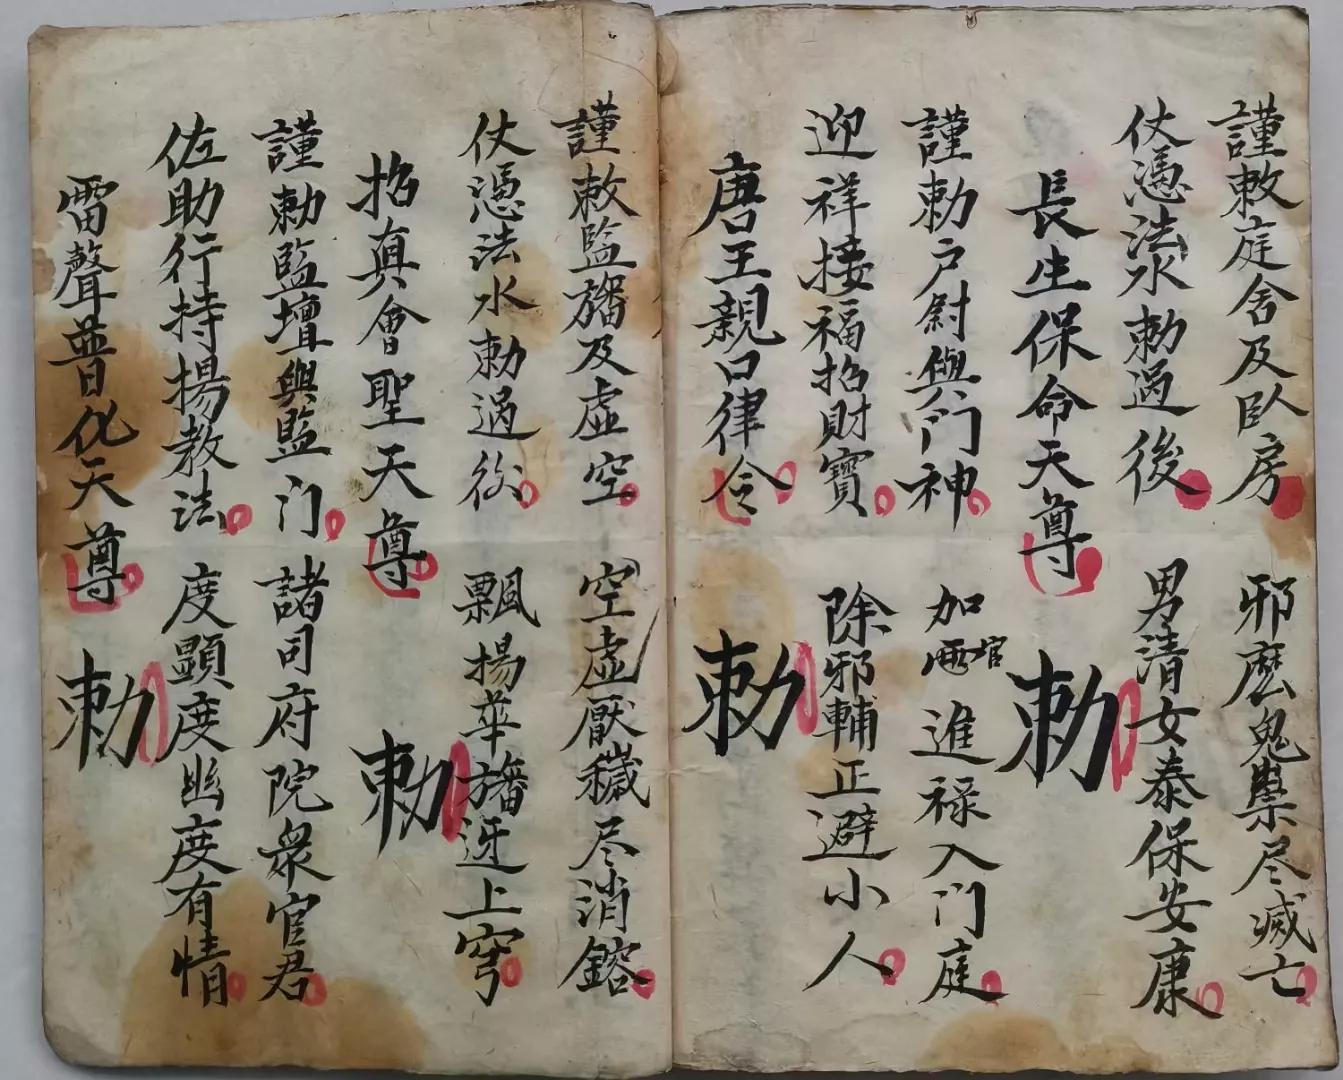 謹敕庭舍及臥房 邪麽鬼祟尽滅亡
仗憑法水勅過後 男清女泰保安康
長生保命天尊 勅
謹勅户尉與门神 加官進禄入门庭
迎祥接福招財寳 除邪輔正避小人
唐王親口律令 勅
謹敕監旛及虚空 空虚厭穢尽消鎔
仗憑法水勅過後 飄揚華旛迓上穹
招真會聖天尊 勅
謹勅監壇與監门 諸司府院衆官君
佐助行持揚教法 度顕度幽度有情
雷聲普化天尊 勅